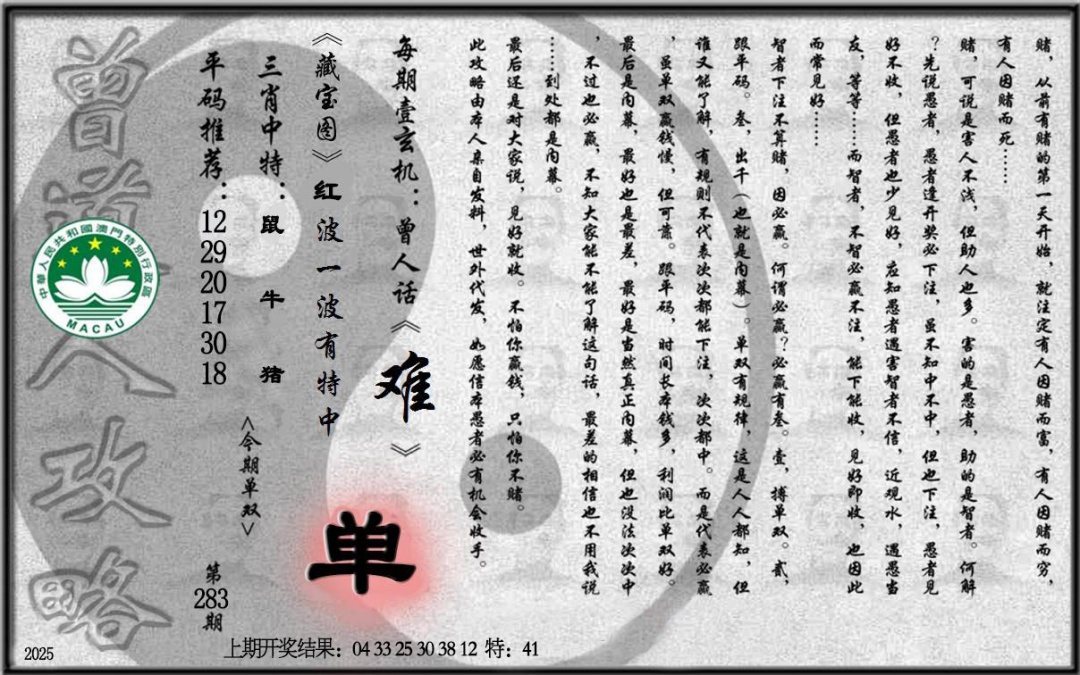 赌，从前有赌的第一天开始，就注定有人因赌而富，有人因赌而穷，
有人因赌而死……
赌，可说是害人不浅，但助人也多。害的是愚者，助的是智者。何解
？先说愚者，愚者逢开奖必下注，虽不知中不中，但也下注，愚者见
好不收，但愚者也少见好，应知愚者遇害智者不信，近观水，遇愚当
友，等等……而智者，不智必赢不注，能下能收，见好即收，也因此
而常见好……
智者下注不算赌，因必赢。何谓必赢？必赢有叁。壹，搏单双。贰，
跟平码。叁，出千（也就是内幕）。单双有规律，这是人人都知，但
谁又能了解，有规则不代表次次都能下注，次次都中。而是代表必赢
，虽单双赢钱慢，但可靠。跟平码，时间长本钱多，利润比单双好。
最后是内幕，最好也是最差，最好是当然真正内幕，但也没法次次中
，不过也必赢，不知大家能不能了解这句话，最差的相信也不用我说
……到处都是内幕。
最后还是对大家说，见好就收。不怕你赢钱，只怕你不赌。
此攻略由本人亲自发料，世外代发，如愿信本愚者必有机会收手。
每期壹玄机：曾人话《难》
《藏宝图》红波一波有特中
单
三肖中特：鼠 牛 猪
<今期单双>
平码推荐：12 29 20 17 30 18
第283期
曾道人攻略
中華人民共和國澳門特別行政區
MACAU
上期开奖结果：04 33 25 30 38 12 特：41
2025